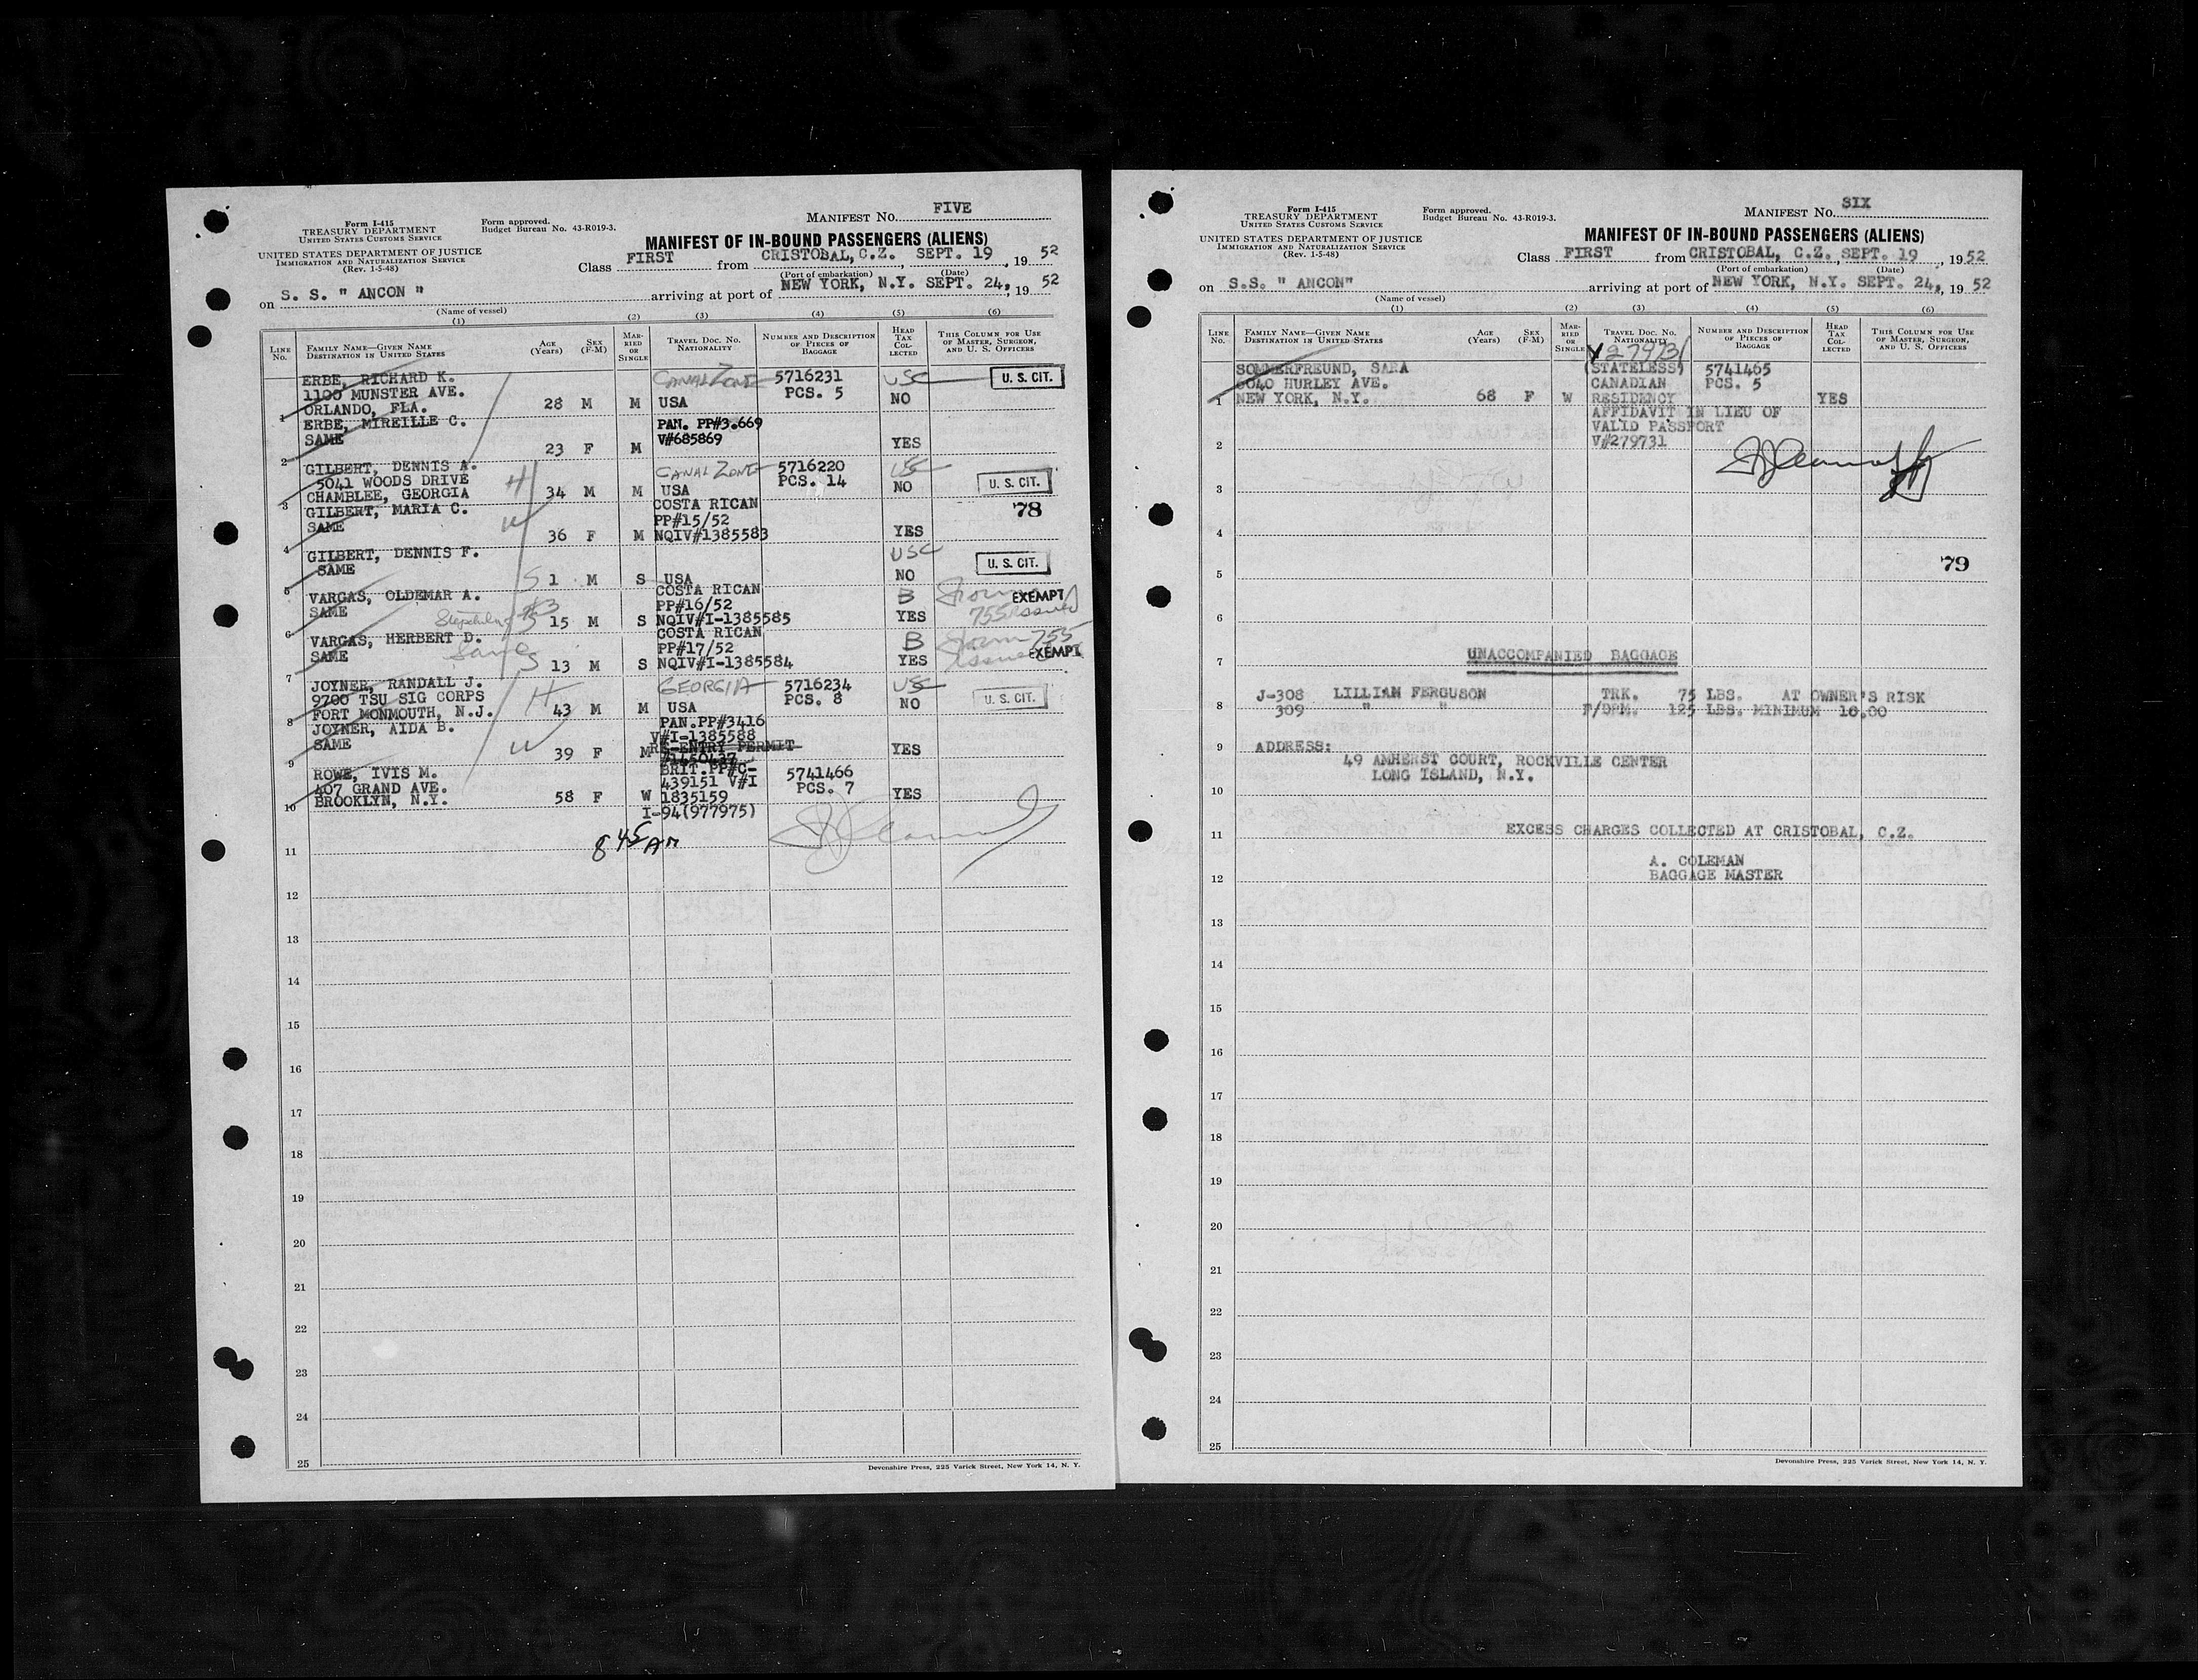 Form I-415
TREASURY DEPARTMENT
UNITED STATES CUSTOMS SERVICE
UNITED STATES DEPARTMENT OF JUSTICE
IMMIGRATION AND NATURALIZATION SERVICE
(Rev. 1-5-48)
Form approved.
Budget Bureau No. 43-R019-3.
MANIFEST No. FIVE
MANIFEST OF IN-BOUND PASSENGERS (ALIENS)
Class FIRST from CRISTOBAL, C.Z. SEPT. 19, 19 52
(Port of embarkation) (Date)
on S. S. " ANCON " arriving at port of NEW YORK, N.Y. SEPT. 24, 19 52
(Name of vessel)
(1) (2) (3) (4) (5) (6)
LINE No. FAMILY NAME—GIVEN NAME DESTINATION IN UNITED STATES AGE (Years) SEX (F-M) MARRIED OR SINGLE TRAVEL DOC. NO. NATIONALITY NUMBER AND DESCRIPTION OF PIECES OF BAGGAGE HEAD TAX COLLECTED THIS COLUMN FOR USE OF MASTER, SURGEON, AND U. S. OFFICERS
ERBE, RICHARD K. CANAL ZONE 5716231 USC U. S. CIT.
1100 MUNSTER AVE. PCS. 5
ORLANDO, FLA. 28 M M USA NO
1
ERBE, MIREILLE C. PAN. PP#3.669
SAME V#685869
23 F M YES
2
GILBERT, DENNIS A. CANAL ZONE 5716220 USC
5041 WOODS DRIVE H PCS. 14 U. S. CIT.
CHAMBLEE, GEORGIA 34 M M USA NO
3
GILBERT, MARIA C. COSTA RICAN 78
SAME W PP#15/52
36 F M NQIV#1385583 YES
4
GILBERT, DENNIS F. USC
SAME U. S. CIT.
S 1 M S USA NO
5
VARGAS, OLDEMAR A. COSTA RICAN B Form EXEMPT
SAME PP#16/52 755 issued
15 M S NQIV#I-1385585 YES
6
VARGAS, HERBERT D. COSTA RICAN B Form 755
SAME Same PP#17/52 issued EXEMPT
S 13 M S NQIV#I-1385584 YES
7
JOYNER, RANDALL J. GEORGIA 5716234 USC
9700 TSU SIG CORPS H PCS. 8 U. S. CIT.
FORT MONMOUTH, N.J. 43 M M USA NO
8
JOYNER, AIDA B. PAN.PP#3416
SAME W V#I-1385588
39 F M RE-ENTRY PERMIT YES
9
ROWE, IVIS M. BRIT.PP#C- 5741466
407 GRAND AVE. 439151 V#I PCS. 7
BROOKLYN, N.Y. 58 F W 1835159 YES
10 I-94(977975)
845 AM
11
12
13
14
15
16
17
18
19
20
21
22
23
24
25
Devonshire Press, 225 Varick Street, New York 14, N. Y.
Form I-415
TREASURY DEPARTMENT
UNITED STATES CUSTOMS SERVICE
UNITED STATES DEPARTMENT OF JUSTICE
IMMIGRATION AND NATURALIZATION SERVICE
(Rev. 1-5-48)
Form approved.
Budget Bureau No. 43-R019-3.
MANIFEST No. SIX
MANIFEST OF IN-BOUND PASSENGERS (ALIENS)
Class FIRST from CRISTOBAL, C.Z. SEPT. 19, 1952
(Port of embarkation) (Date)
on S.S. " ANCON" arriving at port of NEW YORK, N.Y. SEPT. 24, 19 52
(Name of vessel)
(1) (2) (3) (4) (5) (6)
LINE No. FAMILY NAME—GIVEN NAME DESTINATION IN UNITED STATES AGE (Years) SEX (F-M) MARRIED OR SINGLE TRAVEL DOC. NO. NATIONALITY NUMBER AND DESCRIPTION OF PIECES OF BAGGAGE HEAD TAX COLLECTED THIS COLUMN FOR USE OF MASTER, SURGEON, AND U. S. OFFICERS
V279731
SOMMERFREUND, SARA (STATELESS) 5741465
6040 HURLEY AVE. CANADIAN PCS. 5
1 NEW YORK, N.Y. 68 F W RESIDENCY YES
AFFIDAVIT IN LIEU OF
VALID PASSPORT
2 V#279731
3
4
5 79
6
7 UNACCOMPANIED BAGGAGE
J-308 LILLIAN FERGUSON TRK. 75 LBS. AT OWNER'S RISK
8 309 " " F/DRM. 125 LBS. MINIMUM 10.00
9 ADDRESS:
49 AMHERST COURT, ROCKVILLE CENTER
LONG ISLAND, N.Y.
10
11 EXCESS CHARGES COLLECTED AT CRISTOBAL, C.Z.
A. COLEMAN
12 BAGGAGE MASTER
13
14
15
16
17
18
19
20
21
22
23
24
25
Devonshire Press, 225 Varick Street, New York 14, N. Y.